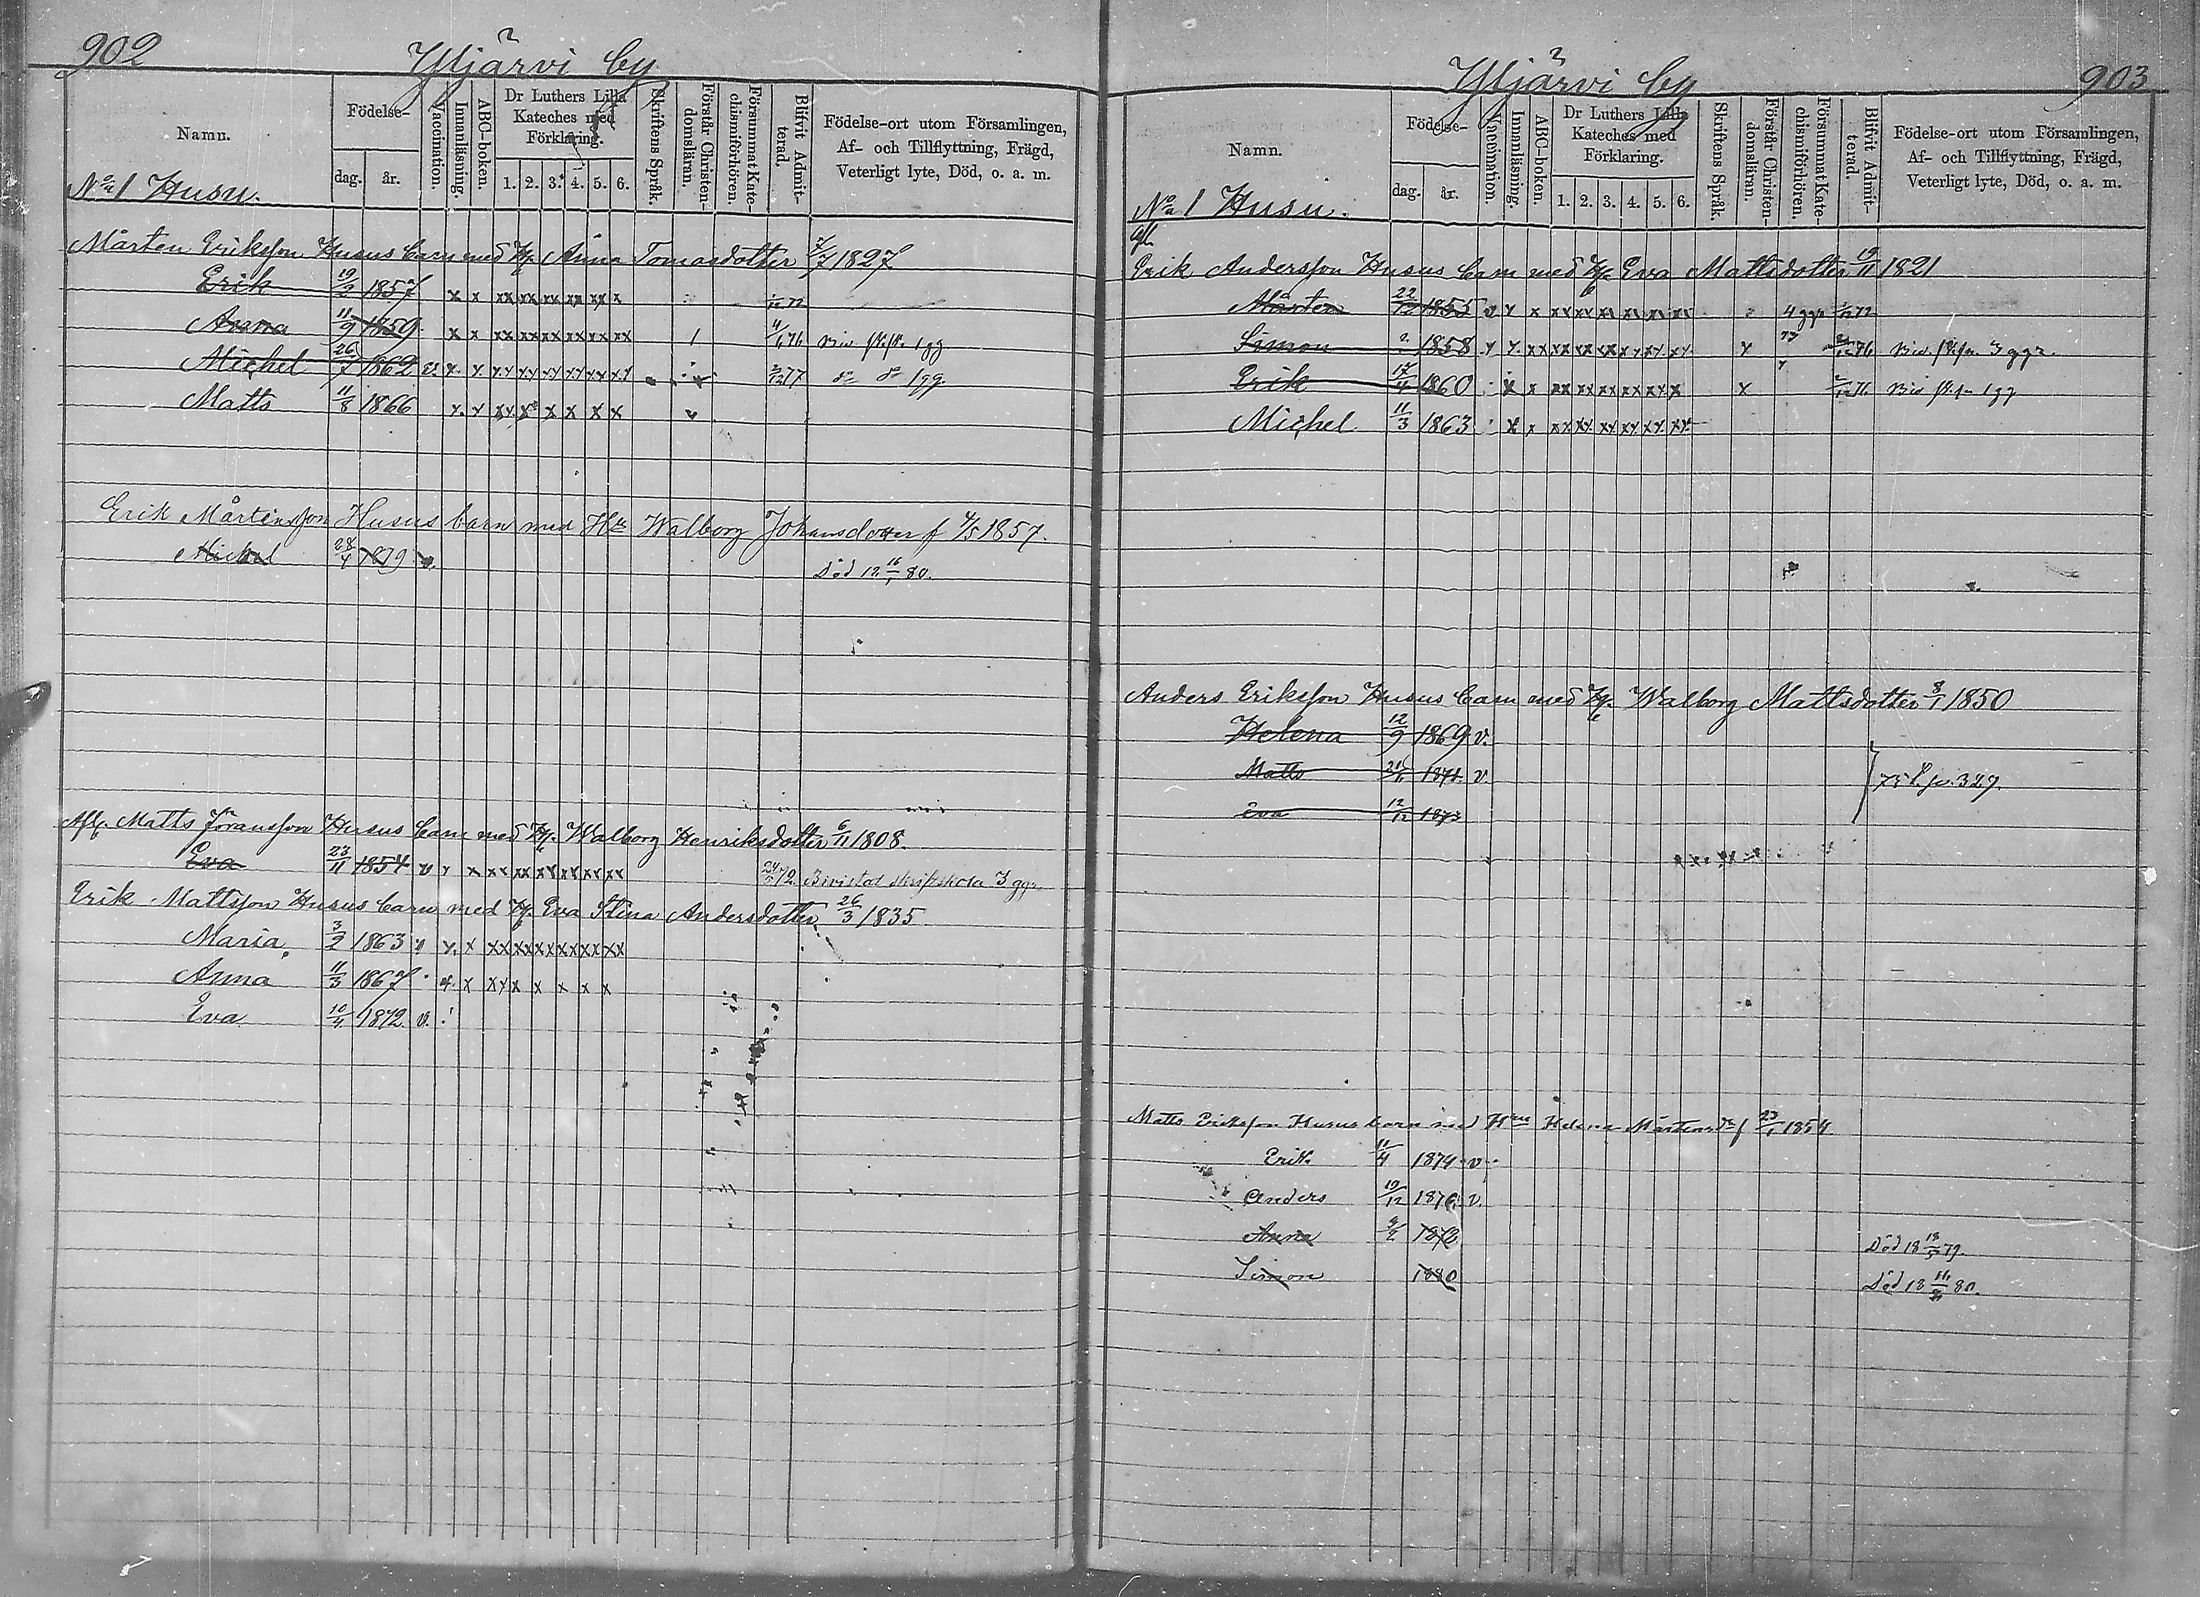 902
Yljärvi by
Namn.
Födelse-
dag.
år.
Vaccination.
Innanläsning.
ABC-boken.
Dr Luthers Lilla
Kateches med
Förklaring.
1. 2. 3. 4. 5. 6.
Skriftens Språk.
Förstår Christen-
domsläran.
Försummat Kate-
chismiförhören.
Blifvit Admit-
terad.
Födelse-ort utom Församlingen,
Af- och Tillflyttning, Frägd,
Veterligt lyte, Död, o. a. m.
No 1 Husu.
Mårten Eriksson Husus barn med H. Anna Tomasdotter 7/7 1827
Erik 19/2 1857 x x xx xx xx xx xx x
Anna 11/9 1859 x x xx xx xx xx xx xx 1 4/6 76 1 gg
Michel 26/7 1862 v. x x xx xx xx xx xx xx 2/12 77 do do 1 gg.
Matts 11/8 1866 x x xx x x x x x
Erik Mårtensson Husus barn med Hu Walborg Johansdotter f 4/5 1857.
Michel 28/4 1879 v. Död 18 16/1 80.
Afl. Matts Jöransson Husus barn med H. Walborg Henriksdotter 6/11 1808.
Eva 23/11 1854 v x x xx xx xx xx xx xx 72 Bivistat skriftskola 3 ggr.
Erik Mattsson Husus barn med H. Eva Stina Andersdotter 26/3 1835
Maria 3/2 1863 v x x xx xx xx xx xx xx
Anna 11/3 1867 x x xx x x x x x
Eva 10/4 1872 v.
Yljärvi by
903
Namn.
Födelse-
dag.
år.
Vaccination.
Innanläsning.
ABC-boken.
Dr Luthers Lilla
Kateches med
Förklaring.
1. 2. 3. 4. 5. 6.
Skriftens Språk.
Förstår Christen-
domsläran.
Försummat Kate-
chismiförhören.
Blifvit Admit-
terad.
Födelse-ort utom Församlingen,
Af- och Tillflyttning, Frägd,
Veterligt lyte, Död, o. a. m.
No 1 Husu.
Afl.
Erik Andersson Husus barn med H. Eva Mattsdotter 1821
Mårten 22/12 1855 v x x xx xx xx xx xx xx 4 ggr 72
Simon 1858 x x xx xx xx xx xx xx xx x 76 3 ggr.
Erik 17/4 1860 x x xx xx xx xx xx x x 76 1 gg
Michel 11/3 1863 x x xx xx xx xx xx xx
Anders Eriksson Husus barn med H. Walborg Mattsdotter 8/1 1850
Helena 12/9 1869 v.
Matts 21/11 1871 v.
75 p. 327.
Eva 12/12 1873
Matts Eriksson Husus barn med Hu Helena Mårtensdr f 1854
Erik 11/4 1874 v
Anders 10/12 1876 v.
Anna 1878 Död 18 79.
Simon 1880 Död 18 80.